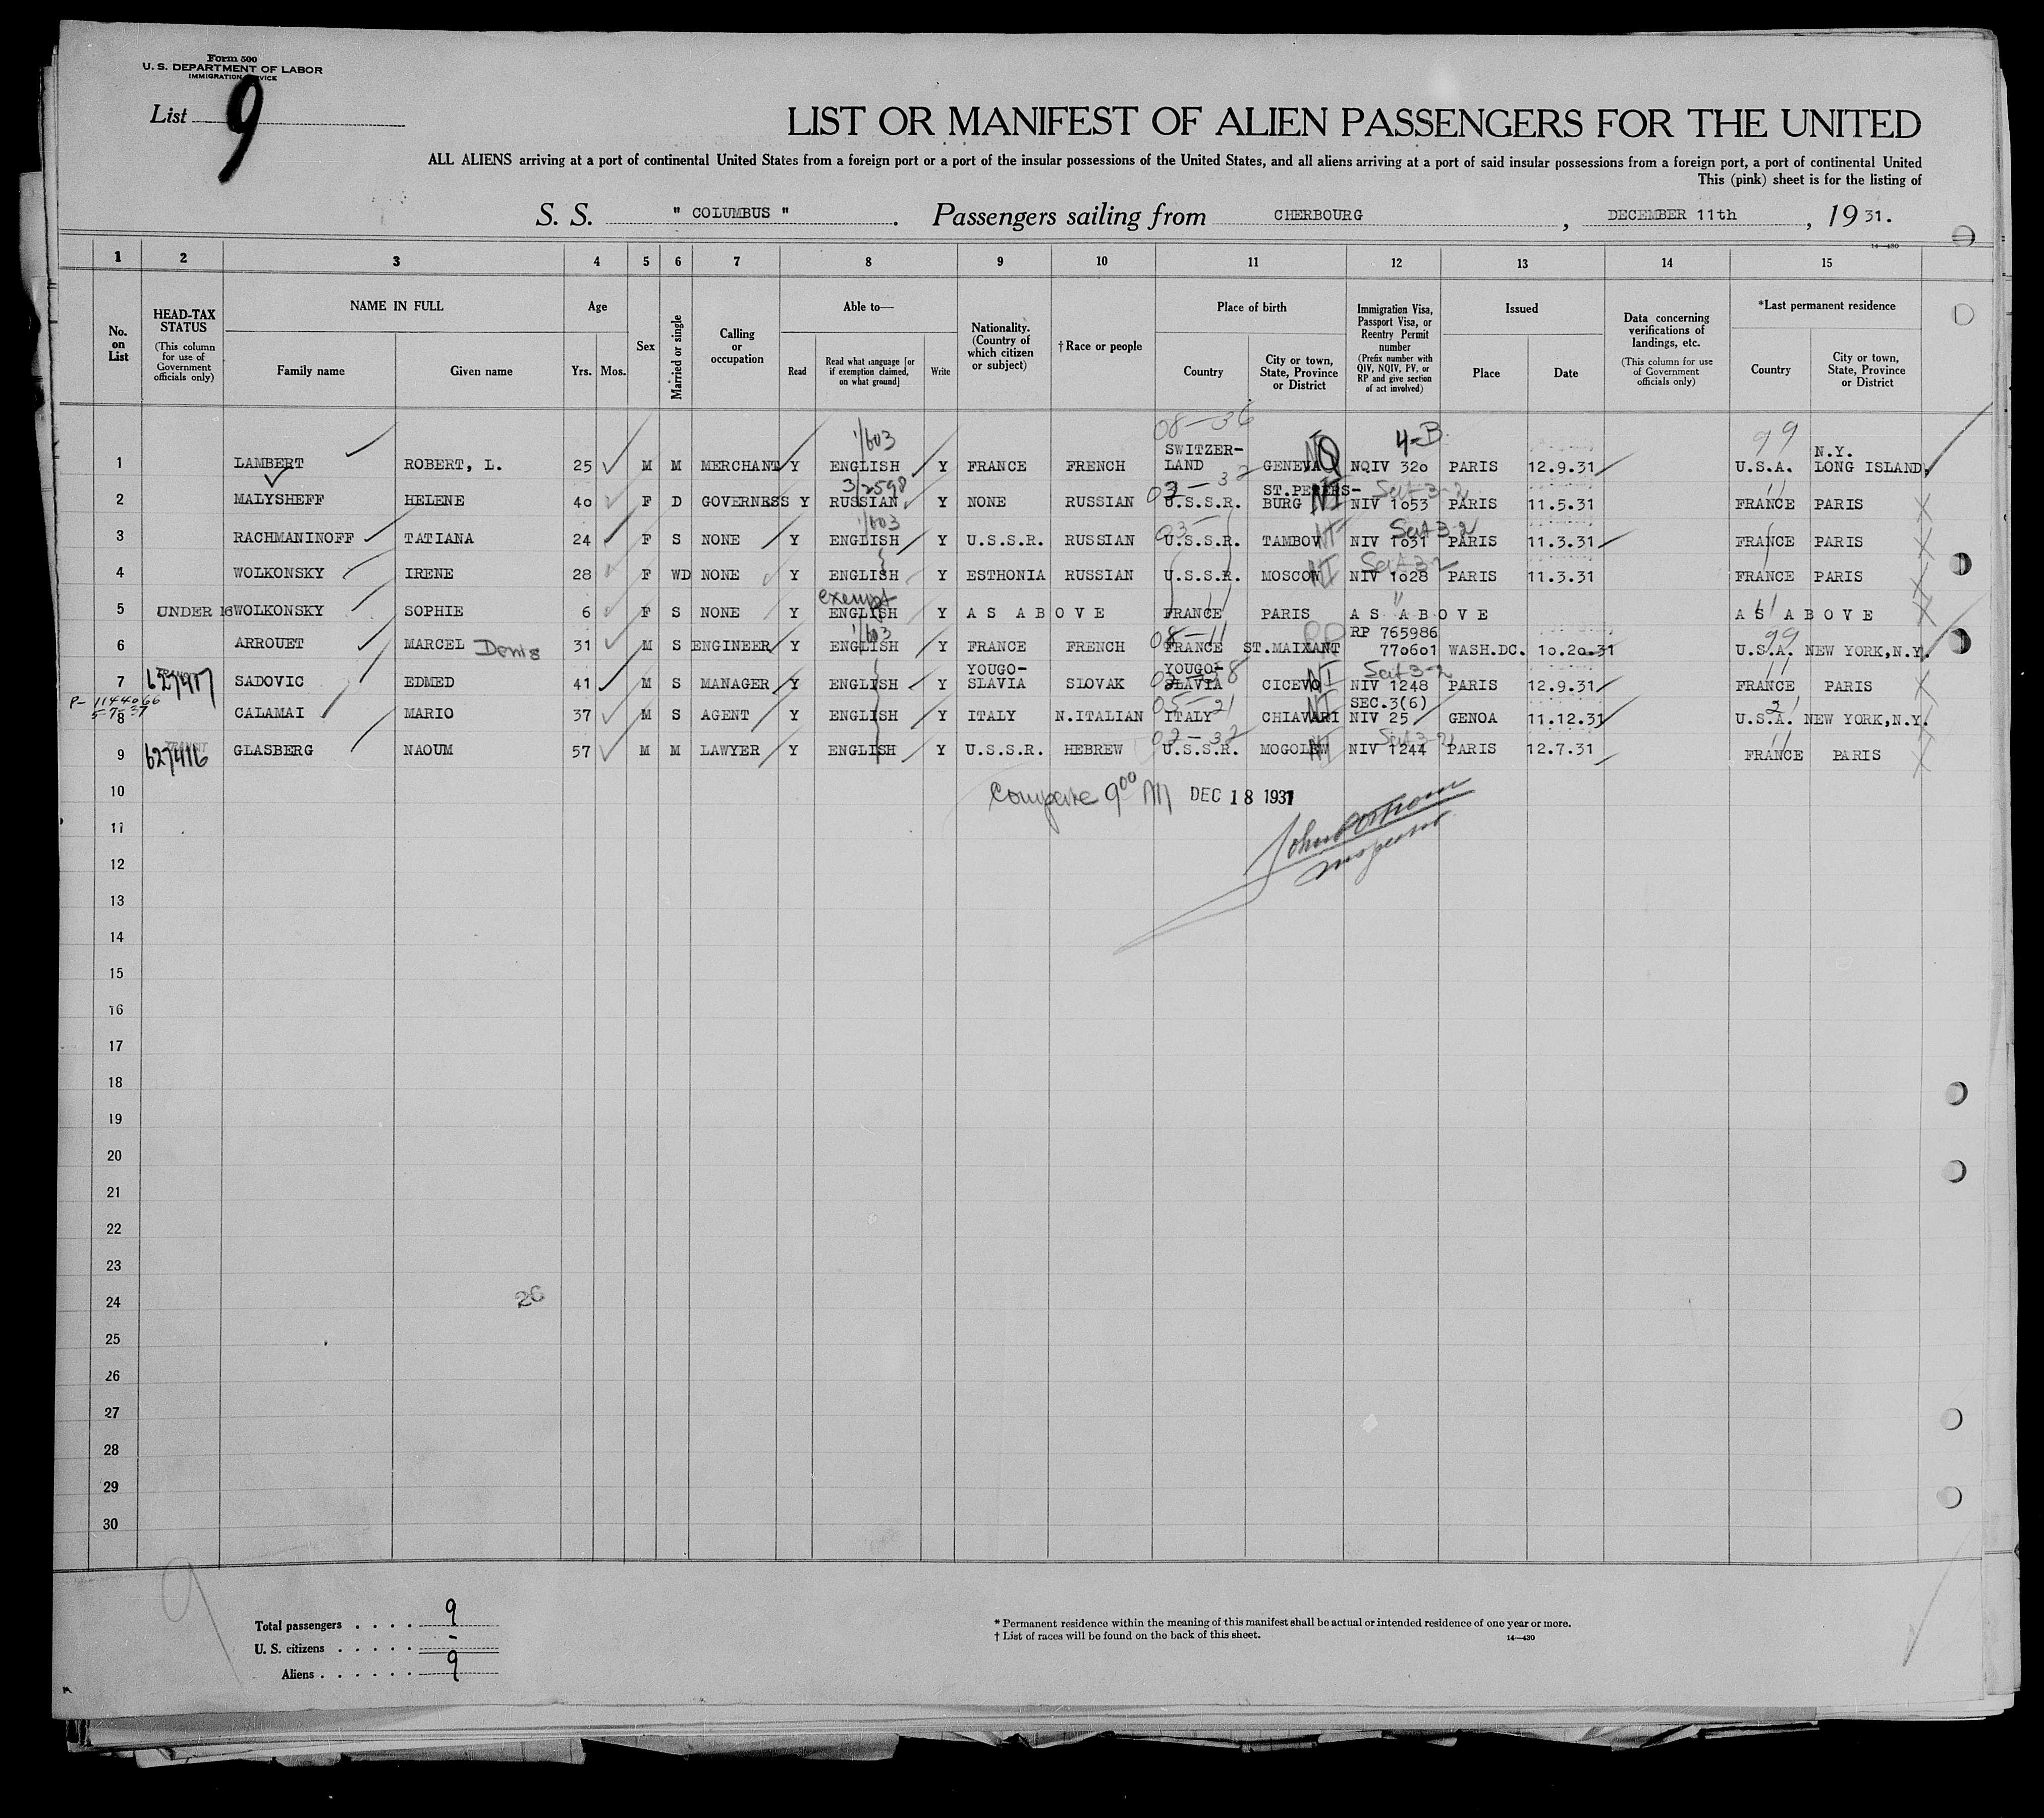 Form 500
U. S. DEPARTMENT OF LABOR
IMMIGRATION SERVICE
List 9
LIST OR MANIFEST OF ALIEN PASSENGERS FOR THE UNITED
ALL ALIENS arriving at a port of continental United States from a foreign port or a port of the insular possessions of the United States, and all aliens arriving at a port of said insular possessions from a foreign port, a port of continental United
This (pink) sheet is for the listing of
S. S. " COLUMBUS ". Passengers sailing from CHERBOURG, DECEMBER 11th, 1931.
14—430
1 2 3 4 5 6 7 8 9 10 11 12 13 14 15
No. on List
HEAD-TAX STATUS (This column for use of Government officials only)
NAME IN FULL
Family name
Given name
Age
Yrs. Mos.
Sex
Married or single
Calling or occupation
Able to—
Read
Read what language [or if exemption claimed, on what ground]
Write
Nationality. (Country of which citizen or subject)
†Race or people
Place of birth
Country
City or town, State, Province or District
Immigration Visa, Passport Visa, or Reentry Permit number (Prefix number with QIV, NQIV, PV, or RP and give section of act involved)
Issued
Place
Date
Data concerning verifications of landings, etc. (This column for use of Government officials only)
*Last permanent residence
Country
City or town, State, Province or District
08—36 4-B 99
1/603
1 LAMBERT ROBERT, L. 25 M M MERCHANT Y ENGLISH Y FRANCE FRENCH SWITZER-LAND GENEVA NQ NQIV 320 PARIS 12.9.31 U.S.A. N.Y. LONG ISLAND.
3/2598 Sect 3-2
2 MALYSHEFF HELENE 40 F D GOVERNESS Y RUSSIAN Y NONE RUSSIAN U.S.S.R. ST.PETERS-BURG NI NIV 1053 PARIS 11.5.31 FRANCE PARIS
1/603 03— Sect 3-2
3 RACHMANINOFF TATIANA 24 F S NONE Y ENGLISH Y U.S.S.R. RUSSIAN U.S.S.R. TAMBOV NI NIV 1031 PARIS 11.3.31 FRANCE PARIS
Sect 3-2
4 WOLKONSKY IRENE 28 F WD NONE Y ENGLISH Y ESTHONIA RUSSIAN U.S.S.R. MOSCOW NI NIV 1028 PARIS 11.3.31 FRANCE PARIS
exempt
5 UNDER 16 WOLKONSKY SOPHIE 6 F S NONE Y ENGLISH Y AS ABOVE FRANCE PARIS AS ABOVE AS ABOVE
1/603 08—11 RP RP 765986 99
6 ARROUET MARCEL Denis 31 M S ENGINEER Y ENGLISH Y FRANCE FRENCH FRANCE ST.MAIXANT 770601 WASH.DC. 10.20.31 U.S.A. NEW YORK,N.Y.
Sect 3-2
7 627417 SADOVIC EDMED 41 M S MANAGER Y ENGLISH Y YOUGO-SLAVIA SLOVAK YOUGO-SLAVIA CICEVO NI NIV 1248 PARIS 12.9.31 FRANCE PARIS
P-1144066
5-7-37
05—21 SEC.3(6)
8 CALAMAI MARIO 37 M S AGENT Y ENGLISH Y ITALY N.ITALIAN ITALY CHIAVARI NI NIV 25 GENOA 11.12.31 U.S.A. NEW YORK,N.Y.
02—32 Sect 3-2
9 627416 GLASBERG NAOUM 57 M M LAWYER Y ENGLISH Y U.S.S.R. HEBREW U.S.S.R. MOGOLEW NI NIV 1244 PARIS 12.7.31 FRANCE PARIS
10
Compare 9 00 AM DEC 18 1931
11
12
Inspector
13
14
15
16
17
18
19
20
21
22
23
24
26
25
26
27
28
29
30
9
Total passengers . . . . 9
U. S. citizens . . . . . -
Aliens . . . . . . 9
* Permanent residence within the meaning of this manifest shall be actual or intended residence of one year or more.
† List of races will be found on the back of this sheet.
14—430